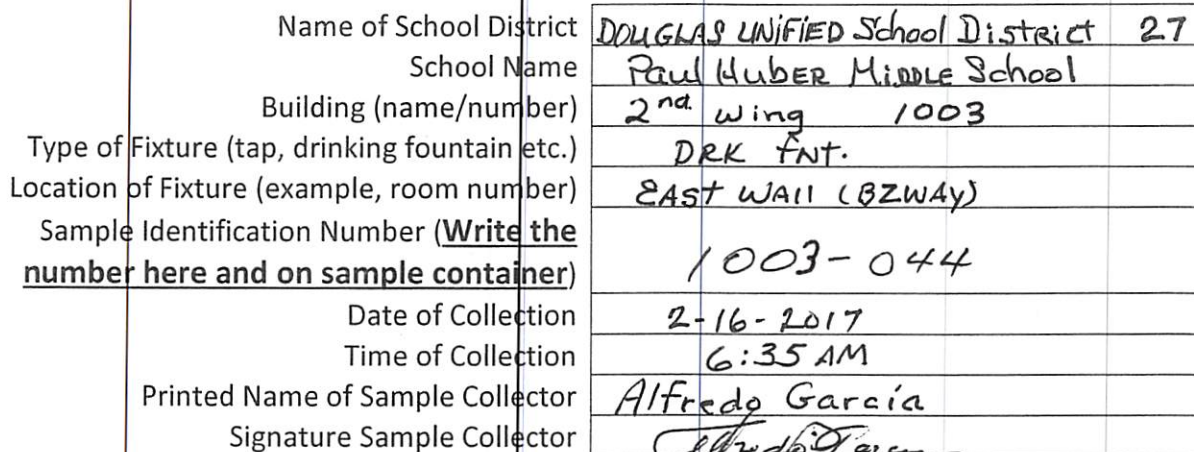 Name of School District DOUGLAS UNIFIED School District 27
School Name Paul Huber Middle School
Building (name/number) 2nd. wing 1003
Type of Fixture (tap, drinking fountain etc.) DRK FNT.
Location of Fixture (example, room number) EAST WAll (BZWAY)
Sample Identification Number (Write the
number here and on sample container) 1003-044
Date of Collection 2-16-2017
Time of Collection 6:35 AM
Printed Name of Sample Collector Alfredo Garcia
Signature Sample Collector